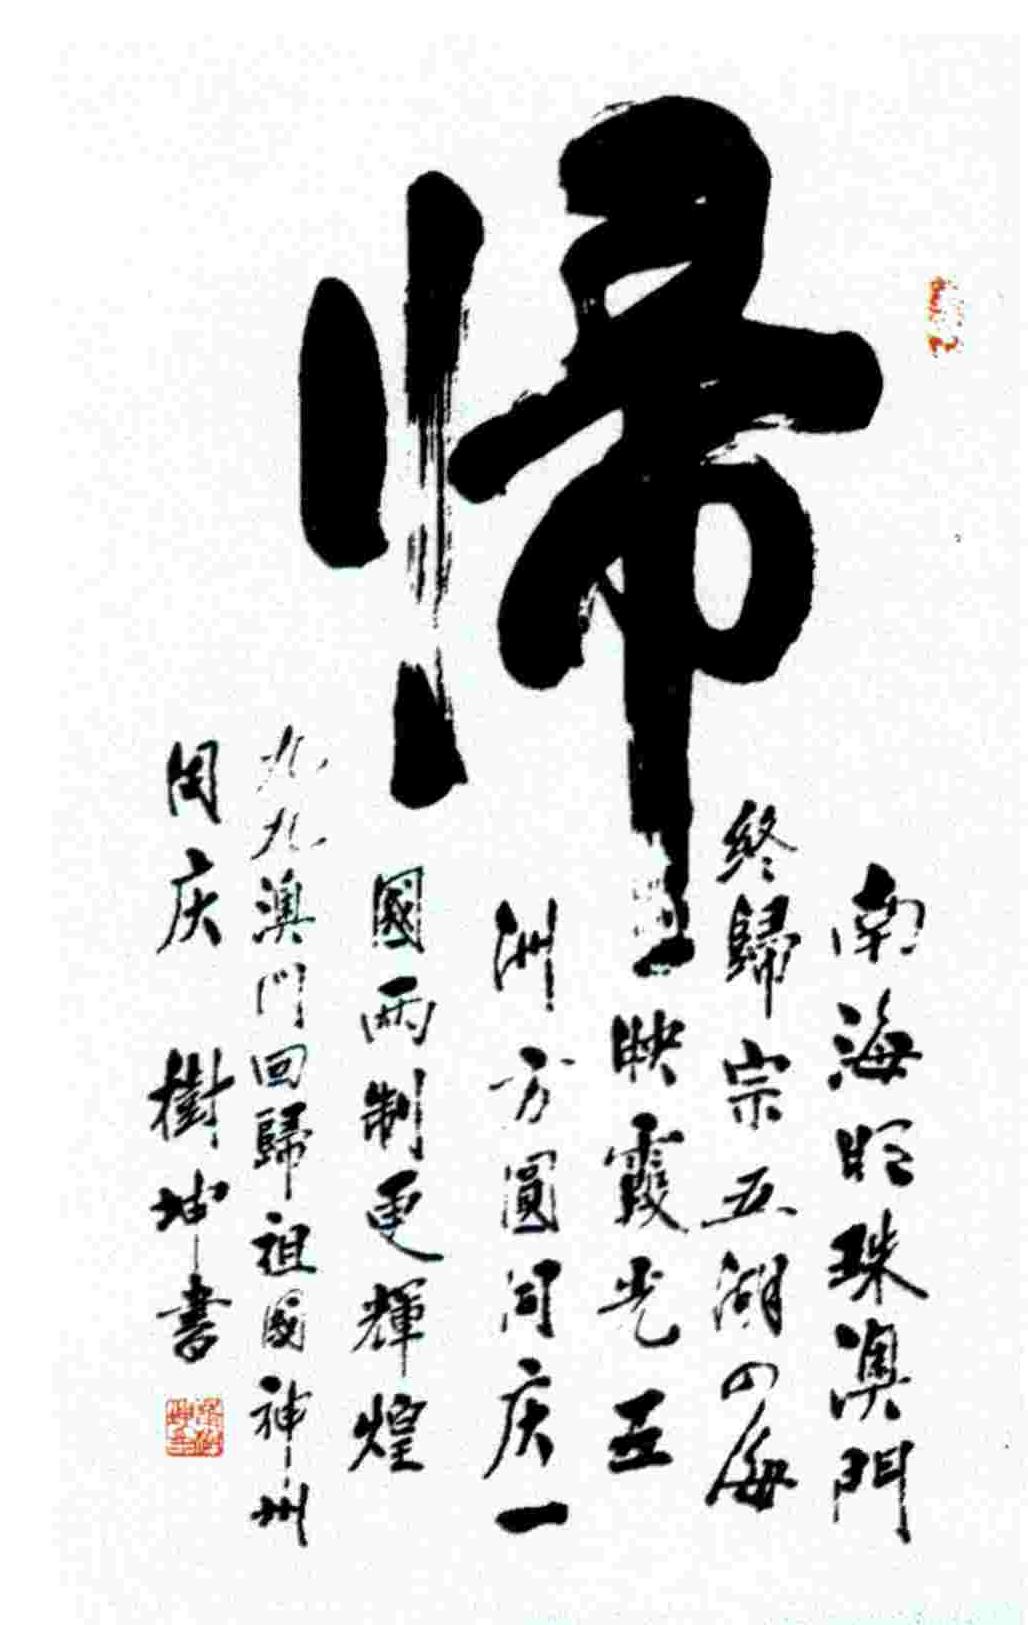 歸
南海明珠澳門
終歸宗五湖四海
映霞光五
洲方圓同庆一
國兩制更輝煌
九九澳門回歸祖國神州
同庆 樹坤書